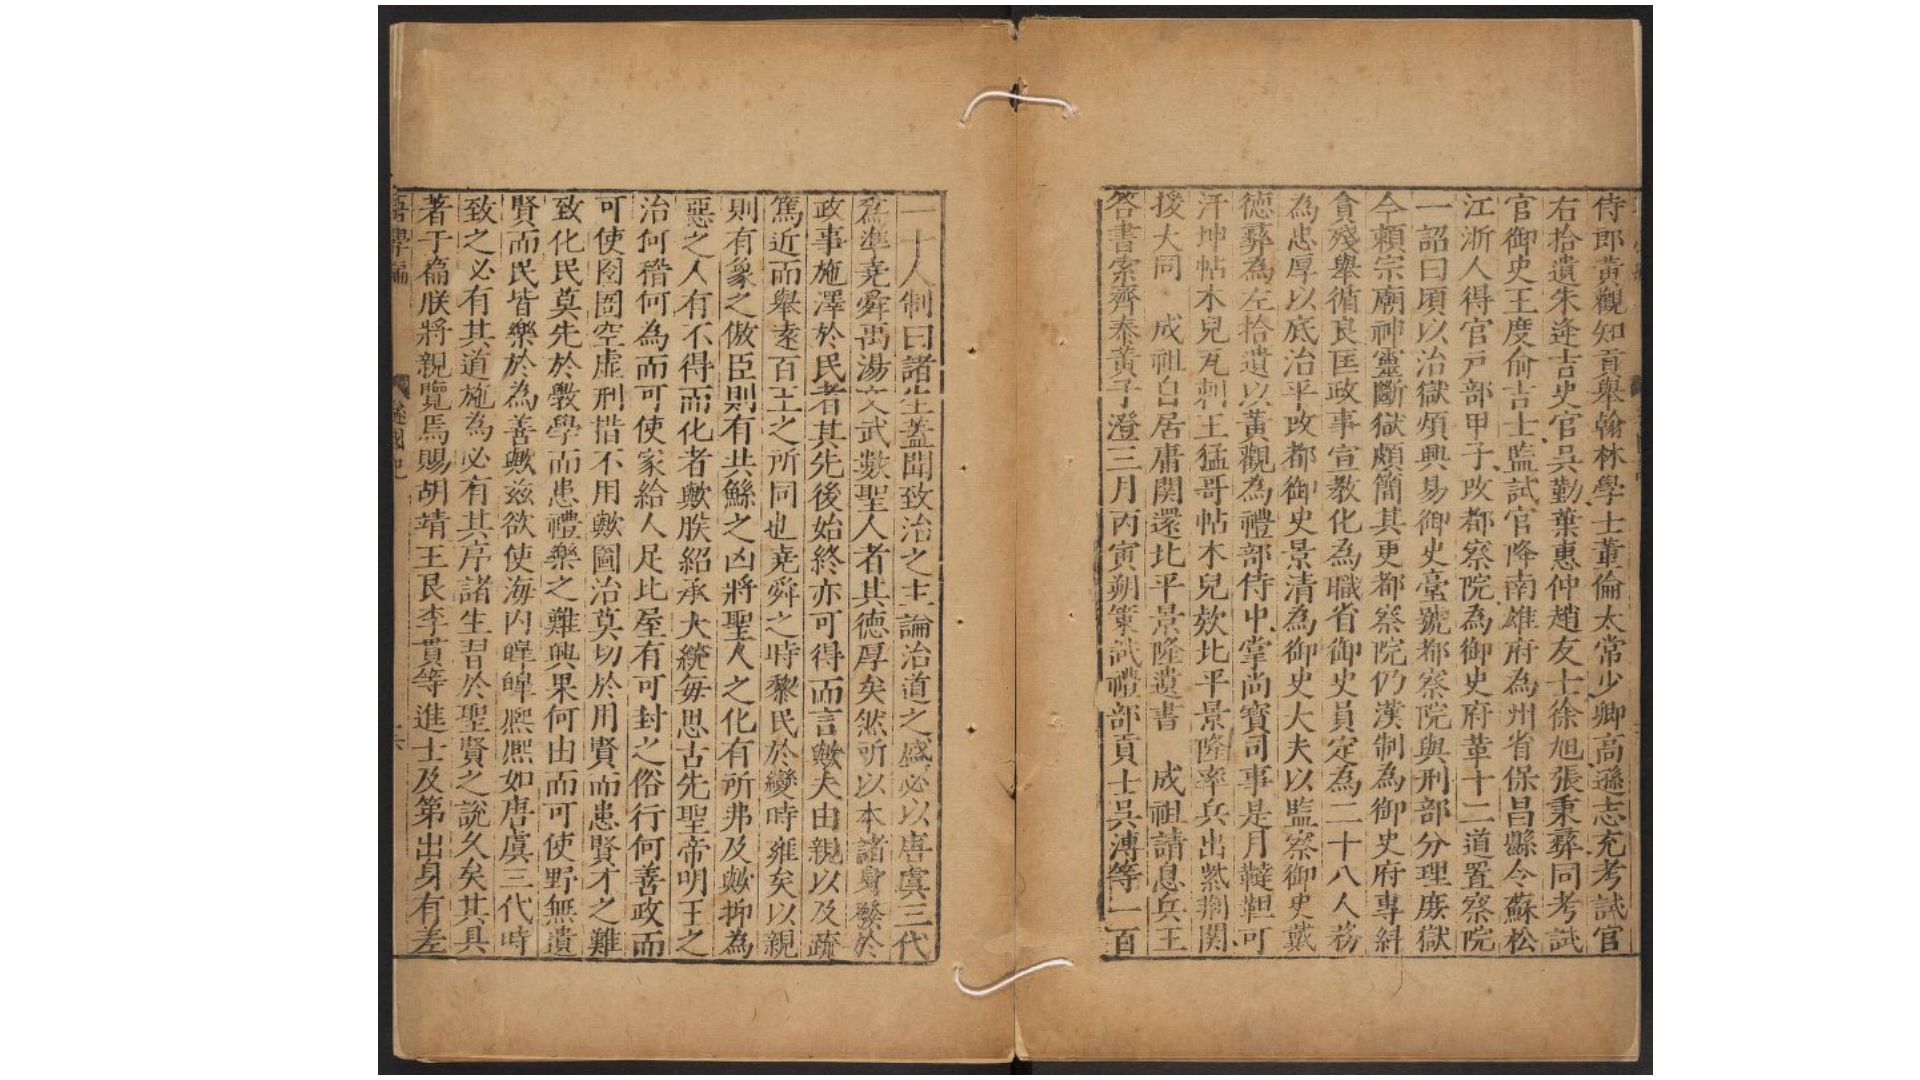 侍郎黃觀知貢舉翰林學士董倫太常少卿高遜志充考試官
右拾遺朱逢吉史官吳勤葉惠仲趙友士徐旭張秉彛同考試
官御史王度俞吉士監試官降南雄府為州省保昌縣令蘇松
江浙人得官戸部甲子改都察院為御史府革十二道置察院
一詔曰頃以治獄煩興易御史臺號都察院與刑部分理庶獄
今賴宗廟神靈斷獄頗簡其更都察院仍漢制為御史府專糾
貪殘舉循良匡政事宣教化為職省御史員定為二十八人務
為忠厚以底治平改都御史景清為御史大夫以監察御史戴
德彛為左拾遺以黃觀為禮部侍中掌尚寶司事是月韃靼可
汗坤帖木兒瓦剌王猛哥帖木兒欵北平景隆率兵出紫荆関
援大同　成祖自居庸関還北平景隆遺書　成祖請息兵王
答書索齊泰黃子澄三月丙寅朔策試禮部貢士吳溥等一百
一十人制曰諸生蓋聞致治之主論治道之盛必以唐虞三代
為準堯舜禹湯文武數聖人者其德厚矣然所以本諸身發於
政事施澤於民者其先後始終亦可得而言歟夫由親以及疏
篤近而舉遠百王之所同也堯舜之時黎民於變時雍矣以親
則有象之傲臣則有共鯀之凶將聖人之化有所弗及歟抑為
惡之人有不得而化者歟朕紹承大統每思古先聖帝明王之
治何稽何為而可使家給人足比屋有可封之俗行何善政而
可使囹圄空虛刑措不用歟圖治莫切於用賢而患賢才之難
致化民莫先於教學而患禮樂之難興果何由而可使野無遺
賢而民皆樂於為善歟兹欲使海内皥皥熈熈如唐虞三代時
致之必有其道施為必有其序諸生習於聖賢之說久矣其具
著于篇朕將親覽焉賜胡靖王艮李貫等進士及第出身有差
吾學編
遜國記